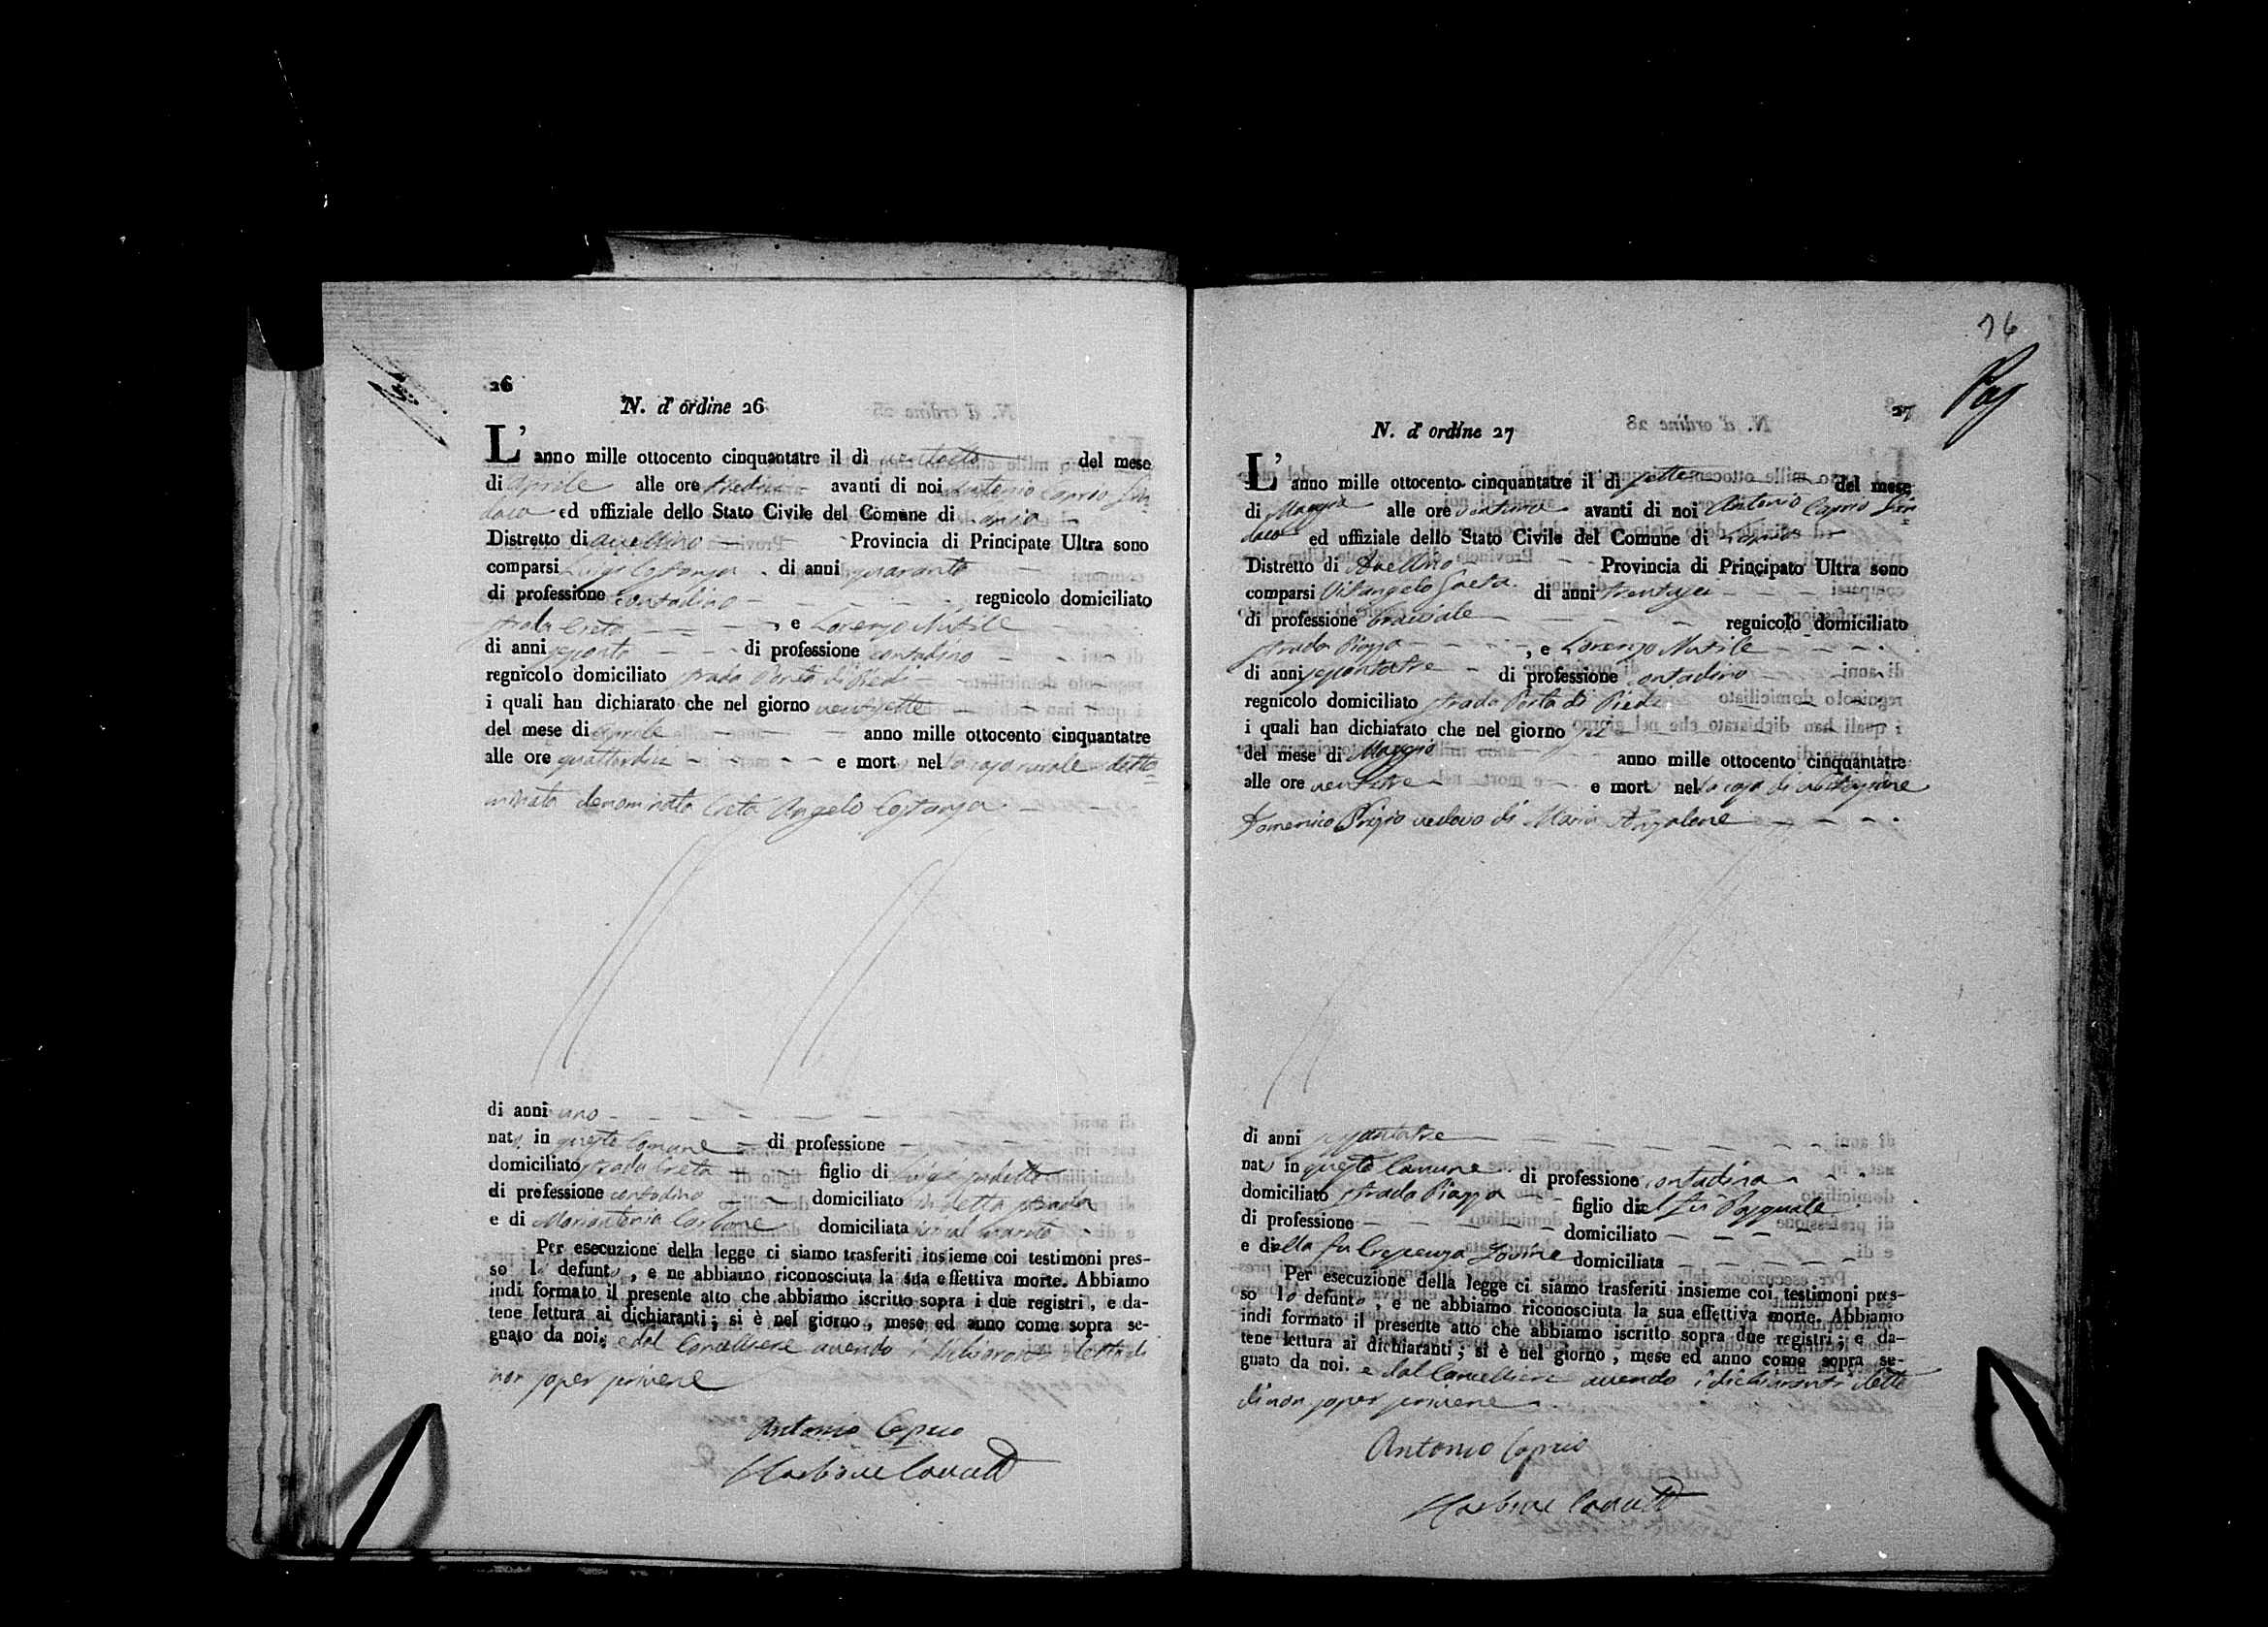 26
N. d' ordine 26
L' anno mille ottocento cinquantatre il dì ventotto del mese
di Aprile alle ore tredici avanti di noi Antonio Caprio Sin=
daco ed uffiziale dello Stato Civile del Comune di
Distretto di Avellino Provincia di Principato Ultra sono
comparsi Luigi Costanza di anni quaranta
di professione contadino regnicolo domiciliato
strada Creta , e Lorenzo Nutile
di anni di professione contadino
regnicolo domiciliato strada Porta di Piedi
i quali han dichiarato che nel giorno ventisette
del mese di Aprile anno mille ottocento cinquantatre
alle ore quattordici e mort nella casa rurale
denominata Creta Angelo Costanza
di anni uno
nato in questo Comune di professione
domiciliato strada Creta figlio di Luigi sudetto
di professione contadino domiciliato in detta strada
e di Mariantonia Carbone domiciliata col marito
Per esecuzione della legge ci siamo trasferiti insieme coi testimoni pres-
so lo defunto, e ne abbiamo riconosciuta la sua effettiva morte. Abbiamo
indi formato il presente atto che abbiamo iscritto sopra i due registri, e da-
tene lettura ai dichiaranti; si è nel giorno, mese ed anno come sopra se-
gnato da noi, e dal Cancelliere avendo i dichiaranti detto di
non saper scrivere
Antonio Caprio
Carbone Cancell
36
27
N. d' ordine 27
L' anno mille ottocento cinquantatre il dì sette del mese
di Maggio alle ore avanti di noi Antonio Caprio Sin=
daco ed uffiziale dello Stato Civile del Comune di
Distretto di Avellino Provincia di Principato Ultra sono
comparsi Vitangelo Gaeta di anni trentasei
di professione bracciale regnicolo domiciliato
strada Piazza , e Lorenzo Nutile
di anni sessantatre di professione contadino
regnicolo domiciliato strada Porta di Piedi
i quali han dichiarato che nel giorno sei
del mese di Maggio anno mille ottocento cinquantatre
alle ore ventitre e morto nella casa di
Domenico vedovo di Maria Anzalone
di anni
nato in questo Comune di professione contadino
domiciliato strada Piazza figlio del fu Pasquale
di professione domiciliato
e della fu Crescenza Iovine domiciliata
Per esecuzione della legge ci siamo trasferiti insieme coi testimoni pres-
so lo defunto, e ne abbiamo riconosciuta la sua effettiva morte. Abbiamo
indi formato il presente atto che abbiamo iscritto sopra due registri; e da-
tene lettura ai dichiaranti; si è nel giorno, mese ed anno come sopra se-
gnato da noi. e dal Cancelliere avendo i dichiaranti detto
di non saper scrivere
Antonio Caprio
Carbone Cancell